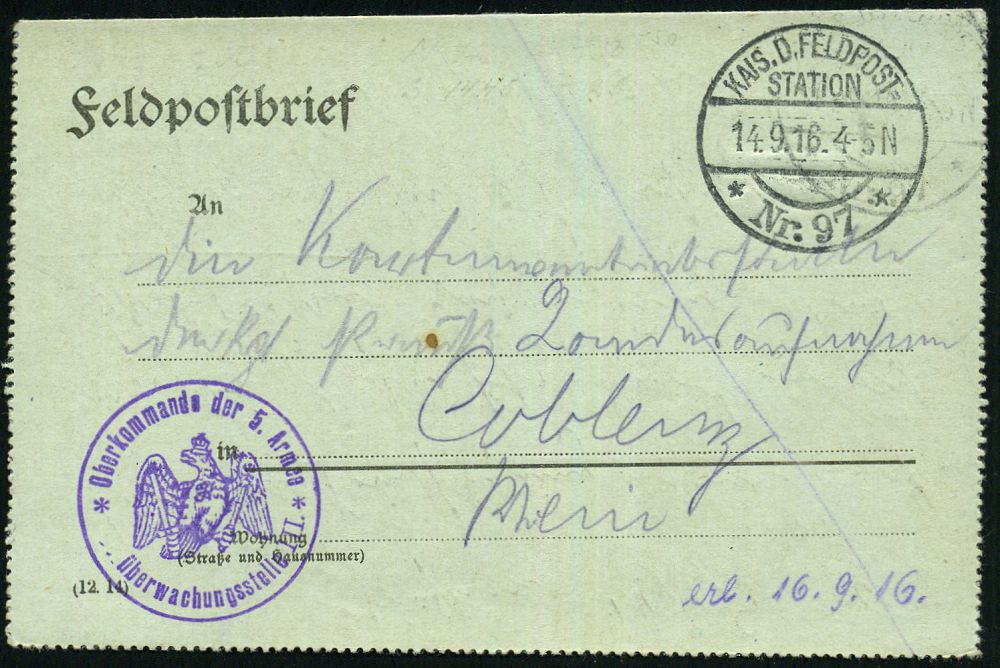 Feldpostbrief
KAIS. D. FELDPOST-
STATION
14.9.16. 4-5N
* Nr. 97 *
An
die Kartenvertriebsstelle
der kgl. Preuß. Landesaufnahme
in Coblenz
Rhein
Wohnung
(Straße und Hausnummer)
* Oberkommando der 5. Armee *
Überwachungsstelle
(12. 14)
erh. 16. 9. 16.